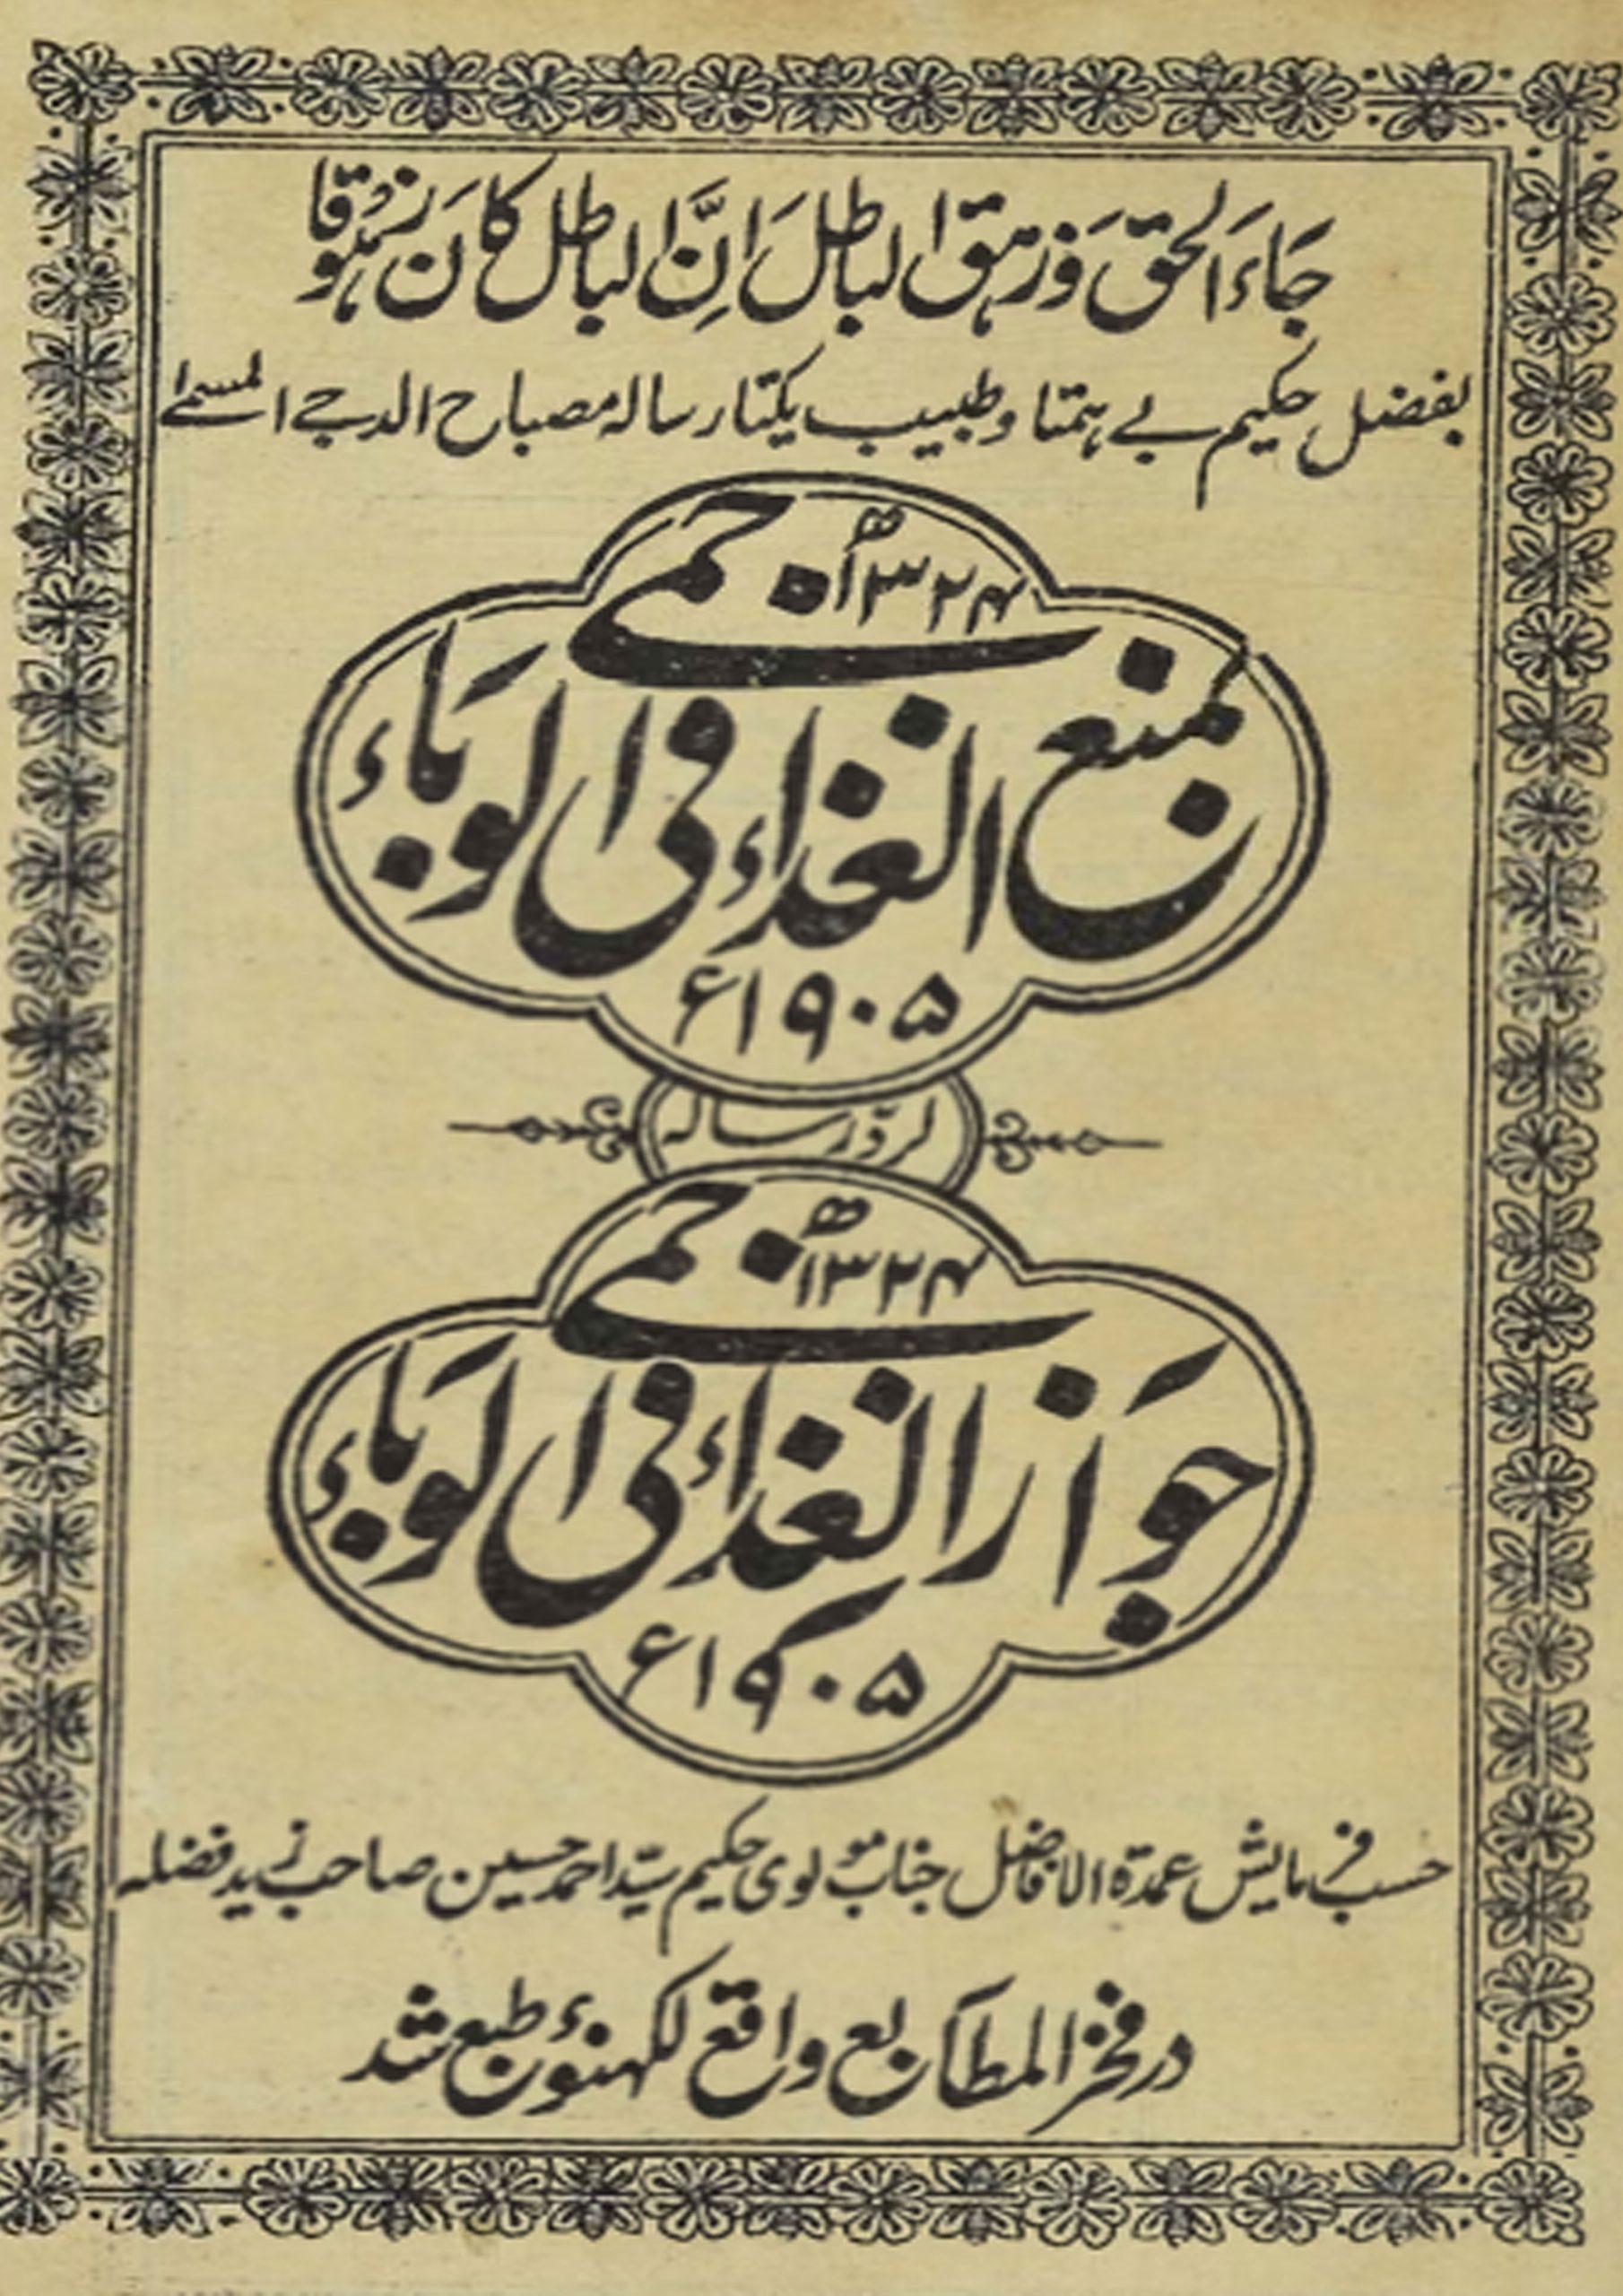 جَاءَ الحق وَزهق الباطلَ انَّ الباطل كانَ زہُوقا
بفضل حکیم بے ہمتا وطبیب یکتا رسالہ مصباح الدجےٰ المسمےٰ
۱۳۲۴ھ
بمنع الغذاء فی الحمی الوباء
۱۹۰۵ء
لردّ رسالہ
۱۳۲۴ھ
جواز الغذاء فی الحمی الوباء
۱۹۰۵ء
حسب فرمایش عمدۃ الافاضل جناب مولوی حکیم سیّد احمد حسین صاحب زید فضلہ
در فخر المطابع واقع لکہنؤ طبع شد